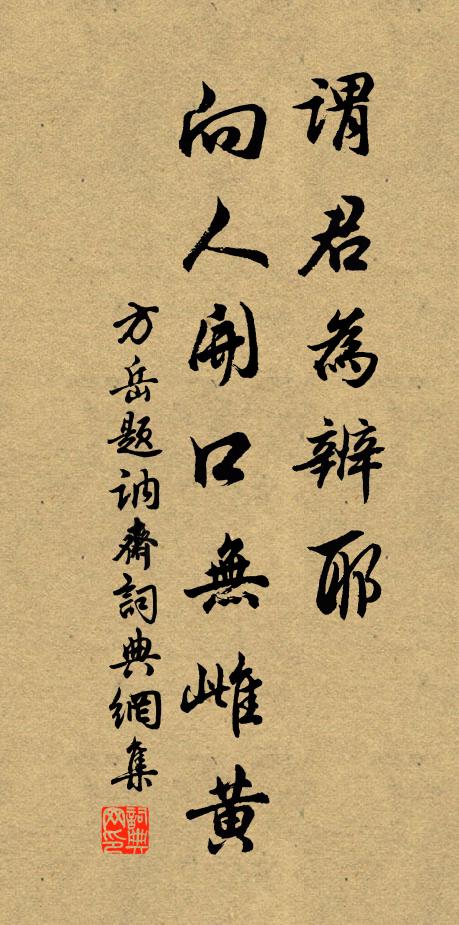 謂君為辨耶
向人開口無雌黄
方岳題訥齋詞典網集
詞典网印